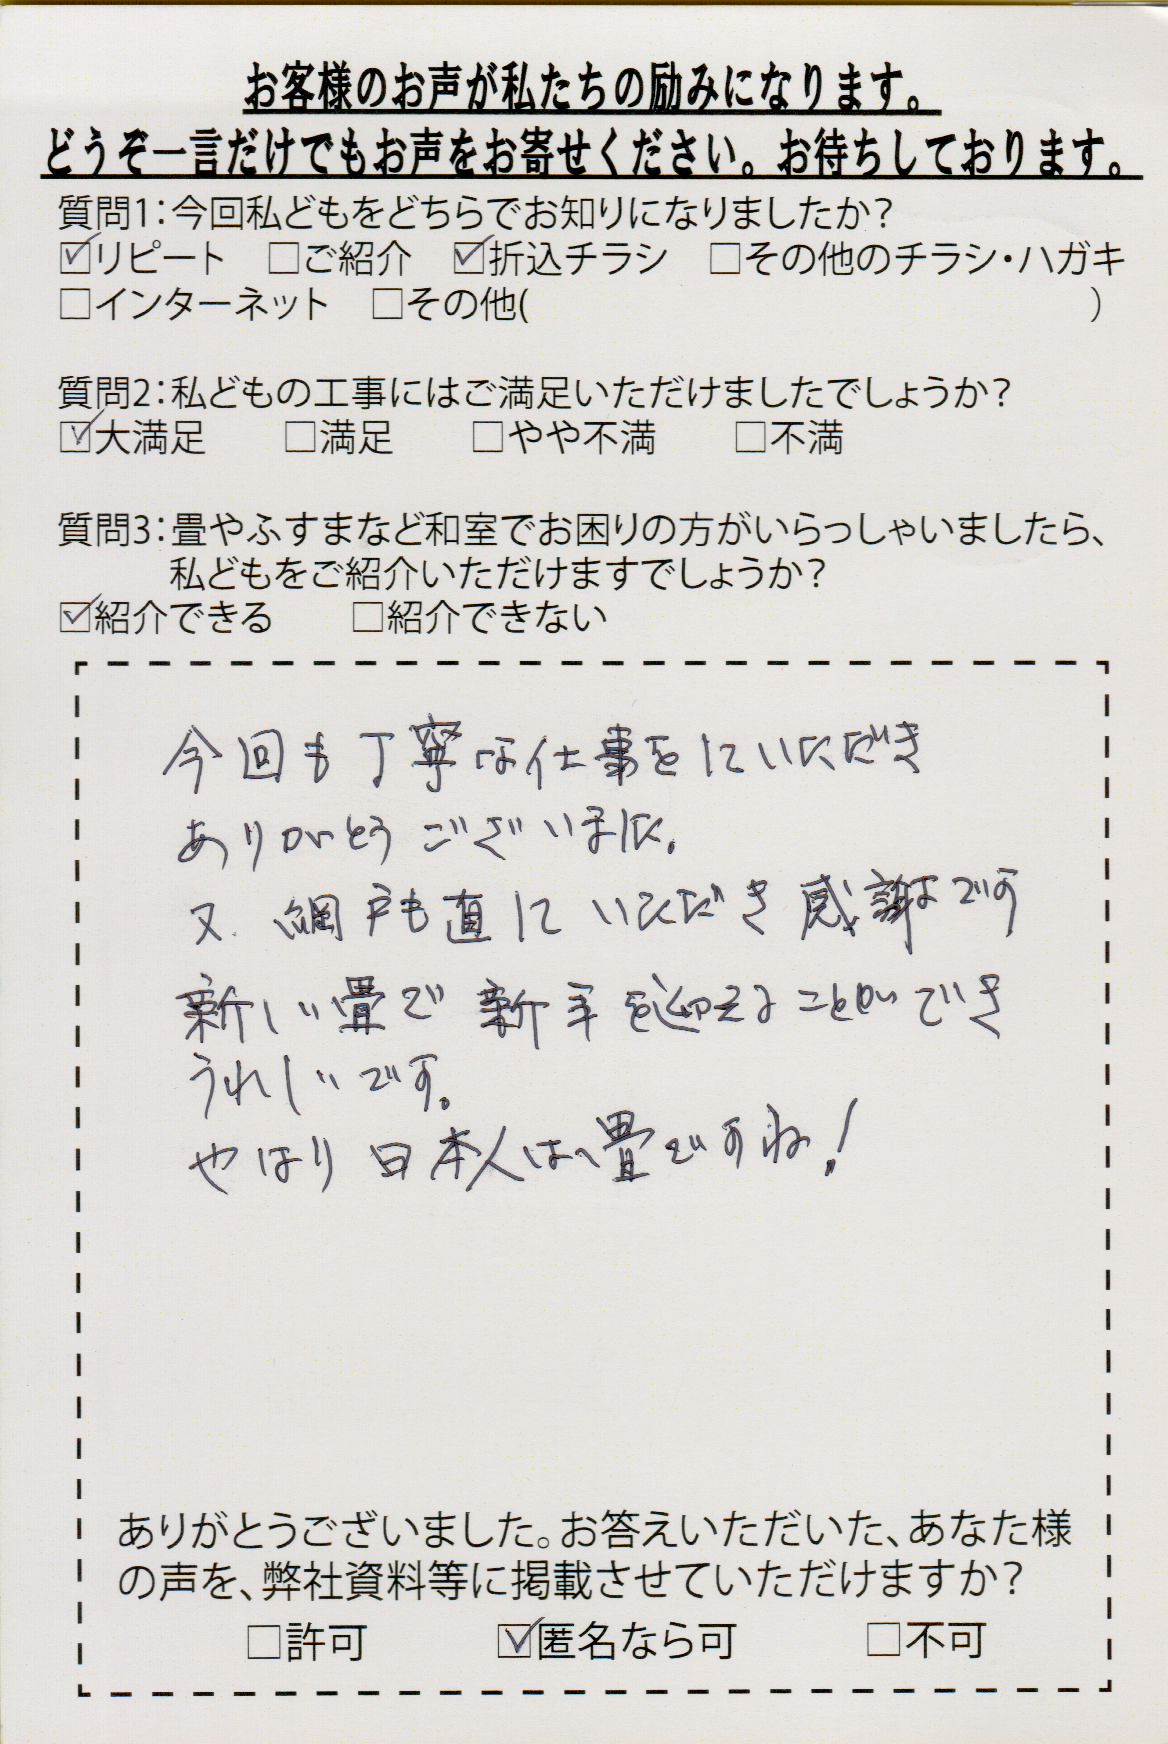 お客様のお声が私たちの励みになります。
どうぞ一言だけでもお声をお寄せください。お待ちしております。
質問1：今回私どもをどちらでお知りになりましたか？
☑リピート　□ご紹介　☑折込チラシ　□その他のチラシ・ハガキ
□インターネット　□その他(　　　　　　　　　　)
質問2：私どもの工事にはご満足いただけましたでしょうか？
☑大満足　□満足　□やや不満　□不満
質問3：畳やふすまなど和室でお困りの方がいらっしゃいましたら、
私どもをご紹介いただけますでしょうか？
☑紹介できる　□紹介できない
今回も丁寧な仕事をしていただき
ありがとうございました。
又、網戸も直していただき感謝です
新しい畳で新年を迎えることができ
うれしいです。
やはり日本人は畳ですね！
ありがとうございました。お答えいただいた、あなた様
の声を、弊社資料等に掲載させていただけますか？
□許可　☑匿名なら可　□不可